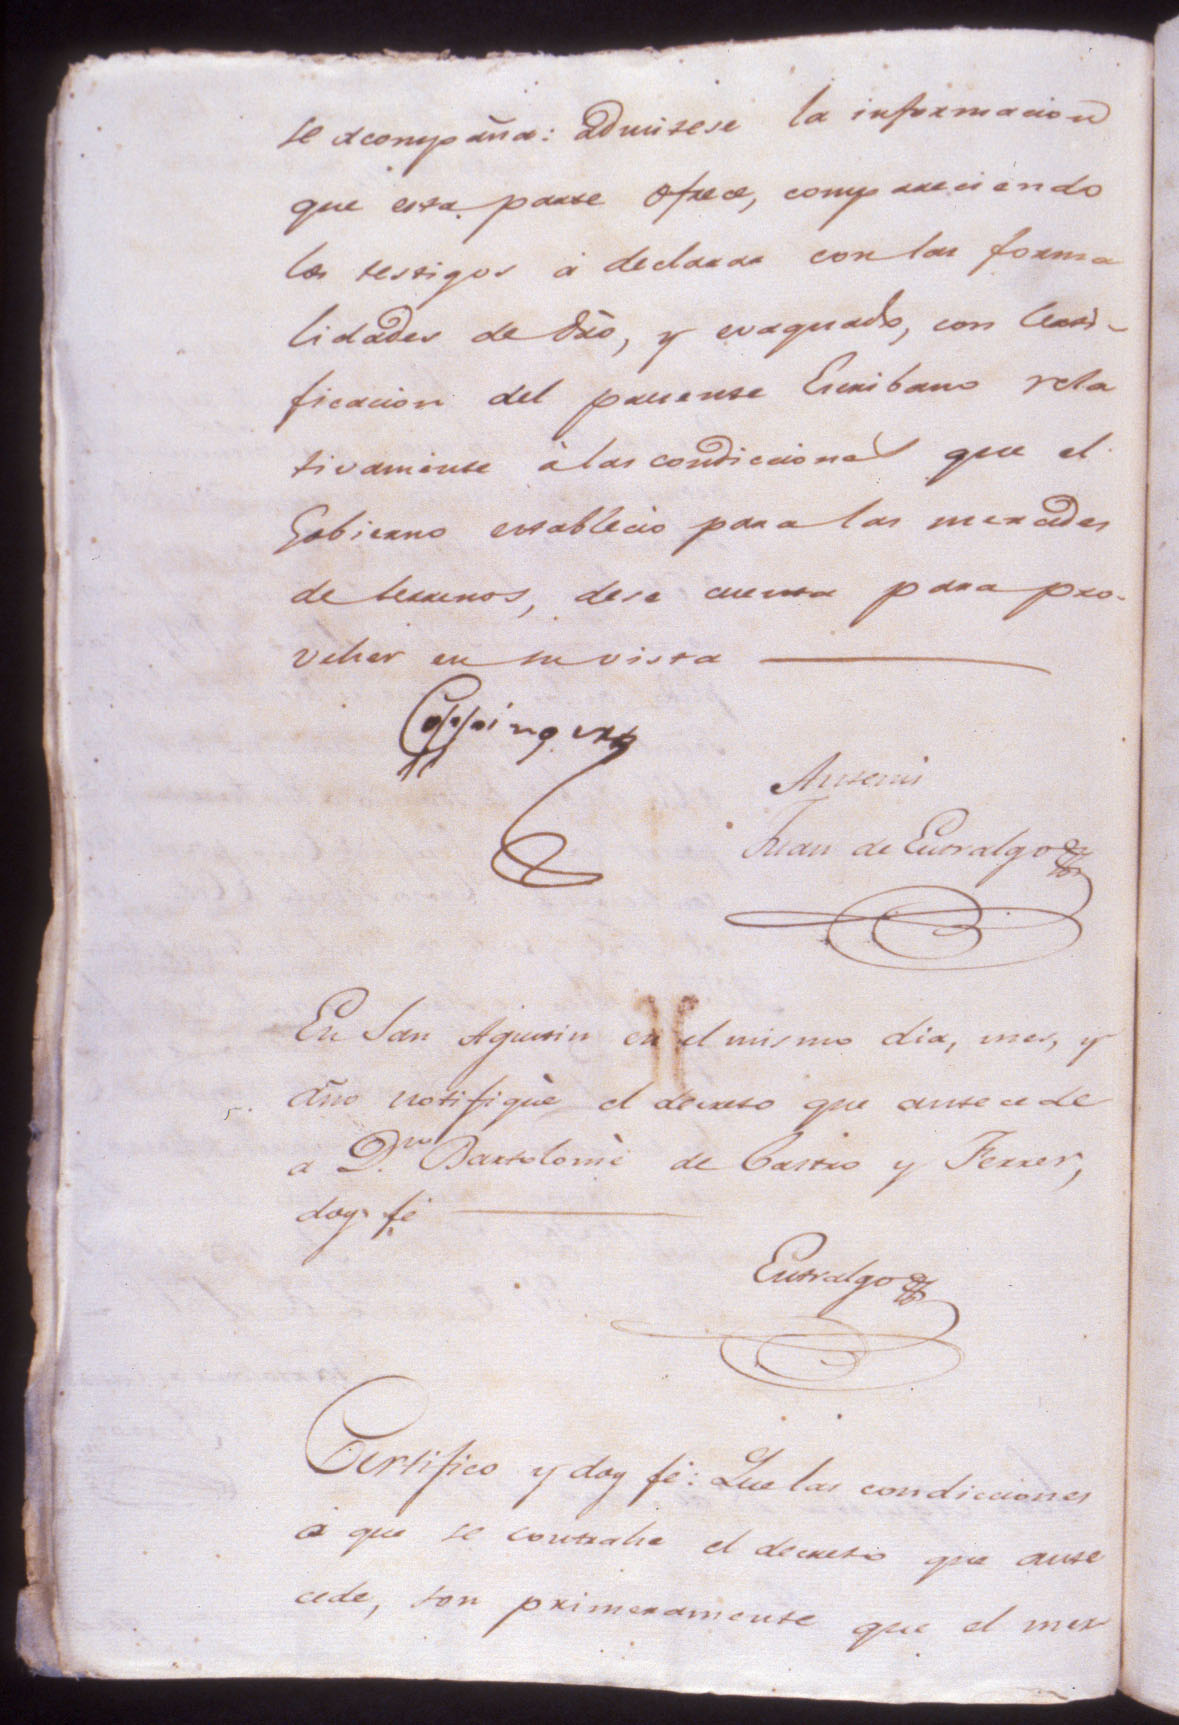 se acompaña: admitese la informacion
que esta parte ofrece, compareciendo
los testigos á declarar con las forma
lidades de dro, y evaquado, con Certi-
ficacion del presente Escribano rela
tivamente à las condicciones que el
Gobierno establecio para las mercedes
de terrenos, dese cuenta para pro-
veher en su vista
Coppinger
Antemi
Juan de Entralgo
En San Agustin en el mismo dia, mes, y
año notifiquè el decreto que antecede
a D.n Bartolomè de Castro y Ferrer,
doy fé
Entralgo
Certifico y doy fé: Que las condicciones
a que se contrahe el decreto que ante
cede, son primeramente que el mer